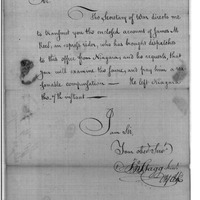 Sir.
The Secretary of War directs me
to transmit you the enclosed account of James M.
Reed, an express rider, who has brought dispatches
to this office from Niagara, and he requests, that
you will examine the same, and pay him a rea-
sonable compensation — He left Niagara
the 7th instant —
I am Sir
Your obed. Serv.